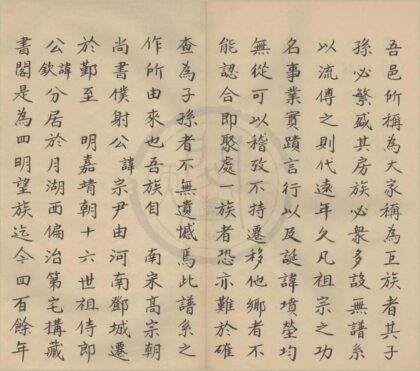 吾邑所稱為巨族者其子
孫必繁盛其房族必衆多設無譜系
以流傳之則代遠年久凡祖宗之功
名事業實蹟言行以及誕諱墳塋均
無從可以稽攷不持遷移他鄉者不
能認合即聚處一族者恐亦難於確
查為子孫者不無遺憾焉此譜系之
作所由來也吾族自 南宋高宗朝
尚書僕射公諱宗尹由河南鄧城遷
於鄞至 明嘉靖朝十六世祖侍郎
公諱欽分居於月湖西偏治第宅構藏
書閣是為四明望族迄今四百餘年